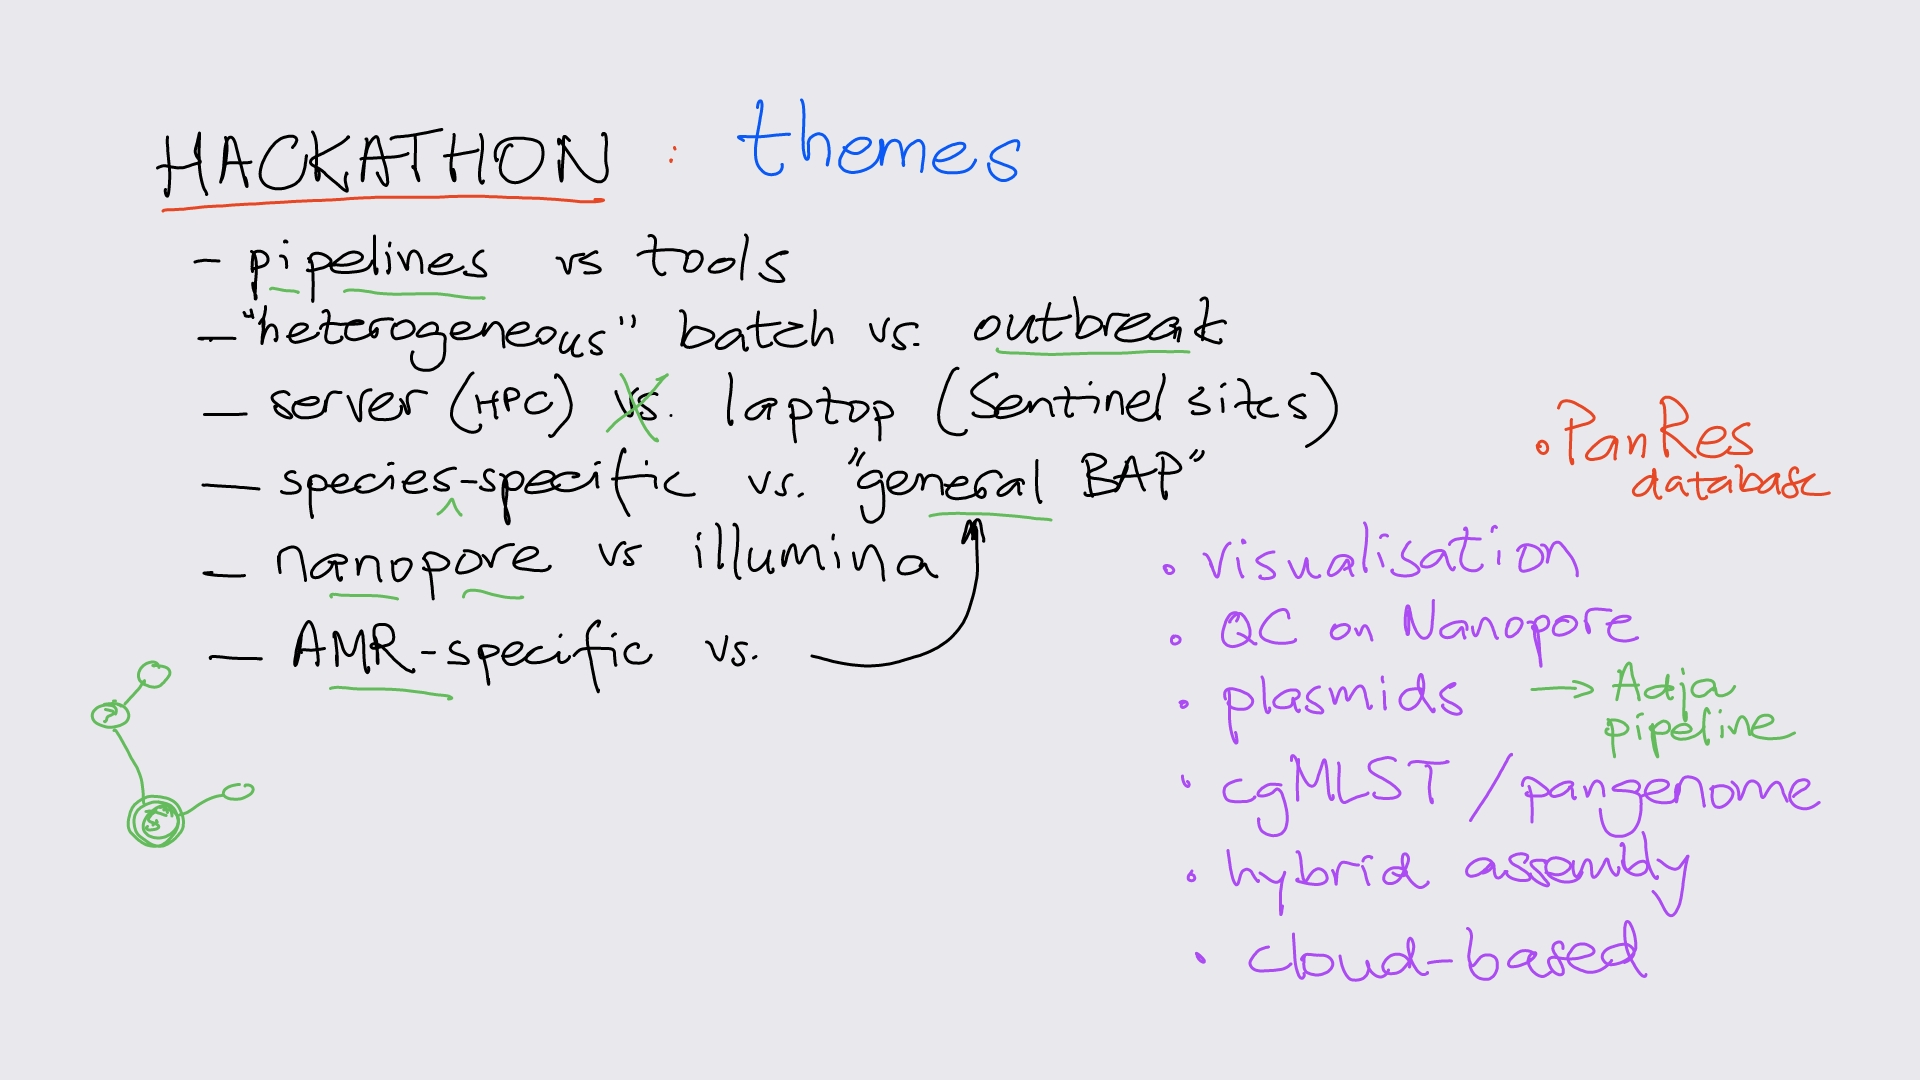 HACKATHON : themes
- pipelines vs tools
- "heterogeneous" batch vs. outbreak
- server (HPC) vs. laptop (Sentinel sites)
- species-specific vs. "general BAP"
- nanopore vs illumina
- AMR-specific vs.
• PanRes
database
• visualisation
• QC on Nanopore
• plasmids → Adja
pipeline
• cgMLST / pangenome
• hybrid assembly
• cloud-based